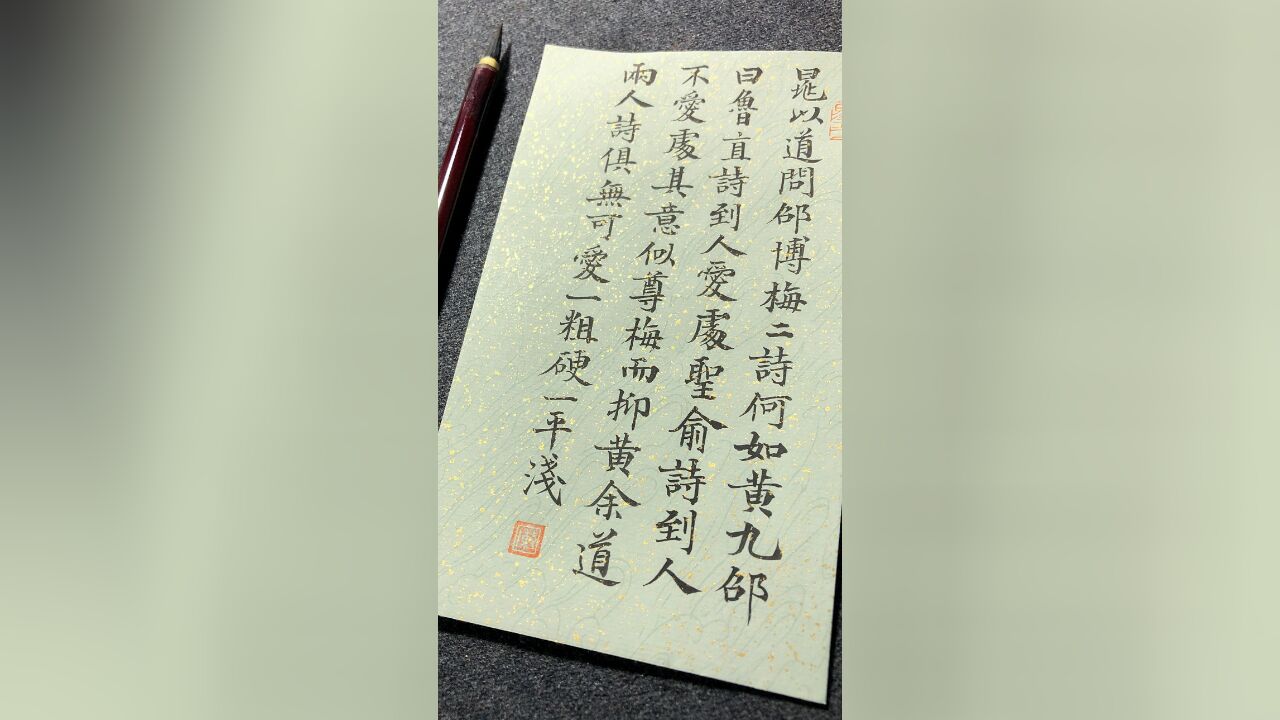 晁以道問邵博梅二詩何如黃九邵
曰魯直詩到人愛處聖俞詩到人
不愛處其意似尊梅而抑黃余道
兩人詩俱無可愛一粗硬一平淺